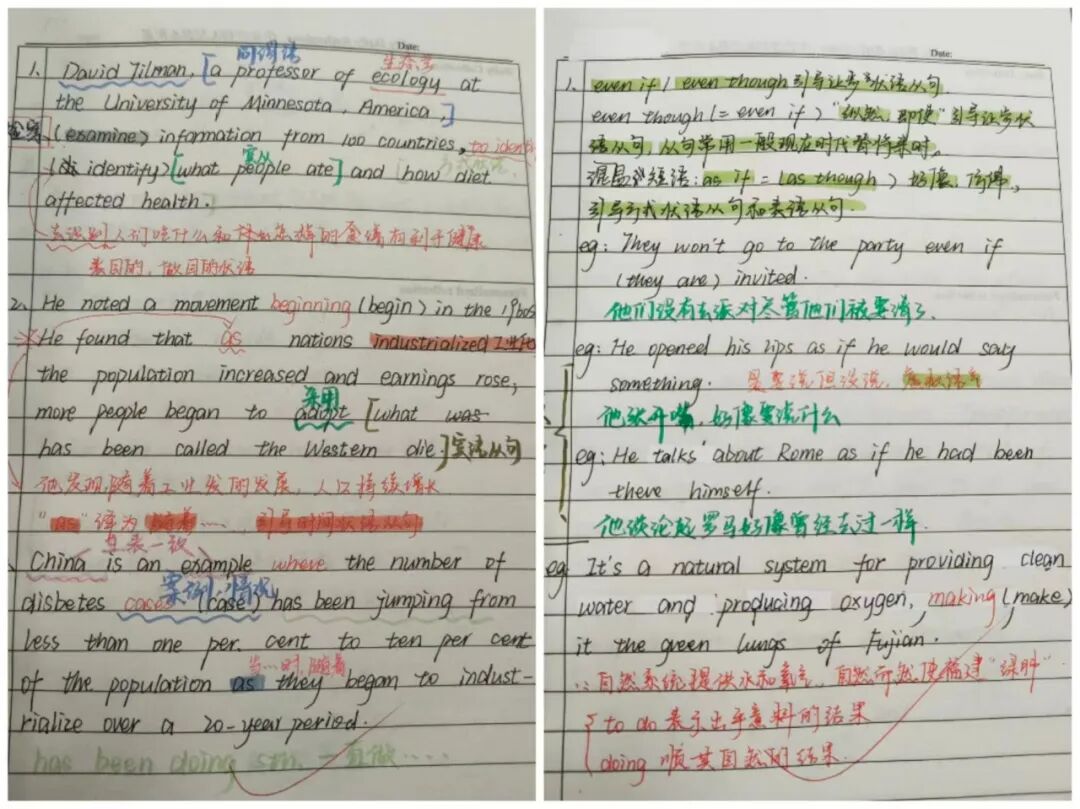 Date:
同谓语 生态学
1. David Tilman, [a professor of ecology at
the University of Minnesota, America,]
(examine) information from 100 countries, to identi
宾从
(identify) [what people ate] and how diet
affected health.
去识别人们吃什么和 的食谱有利于健康
表目的, 做目的状语
2. He noted a movement beginning (begin) in the
He found that as nations industrialized 工业化
the population increased and earnings rose,
采用
more people began to adopt [what was
has been called the Western die.] 宾语从句
他发现, 随着工业发的发展, 人口持续增长
"as" 译为 随着......, 引导时间状语从句
单表一致
China is an example where the number of
案例、情况
disbetes cases (case) has been jumping from
less than one per cent to ten per cent
当...时, 随着
of the population as they began to indust-
rialize over a 20-year period.
has been doing sth. 一直做......
Date:
1. even if / even though 引导让步状语从句.
even though (= even if) "纵然, 即使" 引导让步状
语从句, 从句常用一般现在时代替将来时.
混易 短语: as if = (as though) 好像、仿佛,
引导方式状语从句和表语从句.
eg: They won't go to the party even if
(they are) invited.
他们没有去派对尽管他们被邀请了.
eg: He opened his lips as if he would say
something. 是要说但没说, 虚拟语气
他张开嘴, 好像要说什么
eg: He talks about Rome as if he had been
there himself.
他谈论起罗马好像曾经去过一样.
eg It's a natural system for providing clean
water and producing oxygen, making (make)
it the green lungs of Fujian.
∵自然系统提供水和氧气, 自然而然使福建"绿肺"
to do 表示出乎意料的结果
doing 顺其自然的结果.